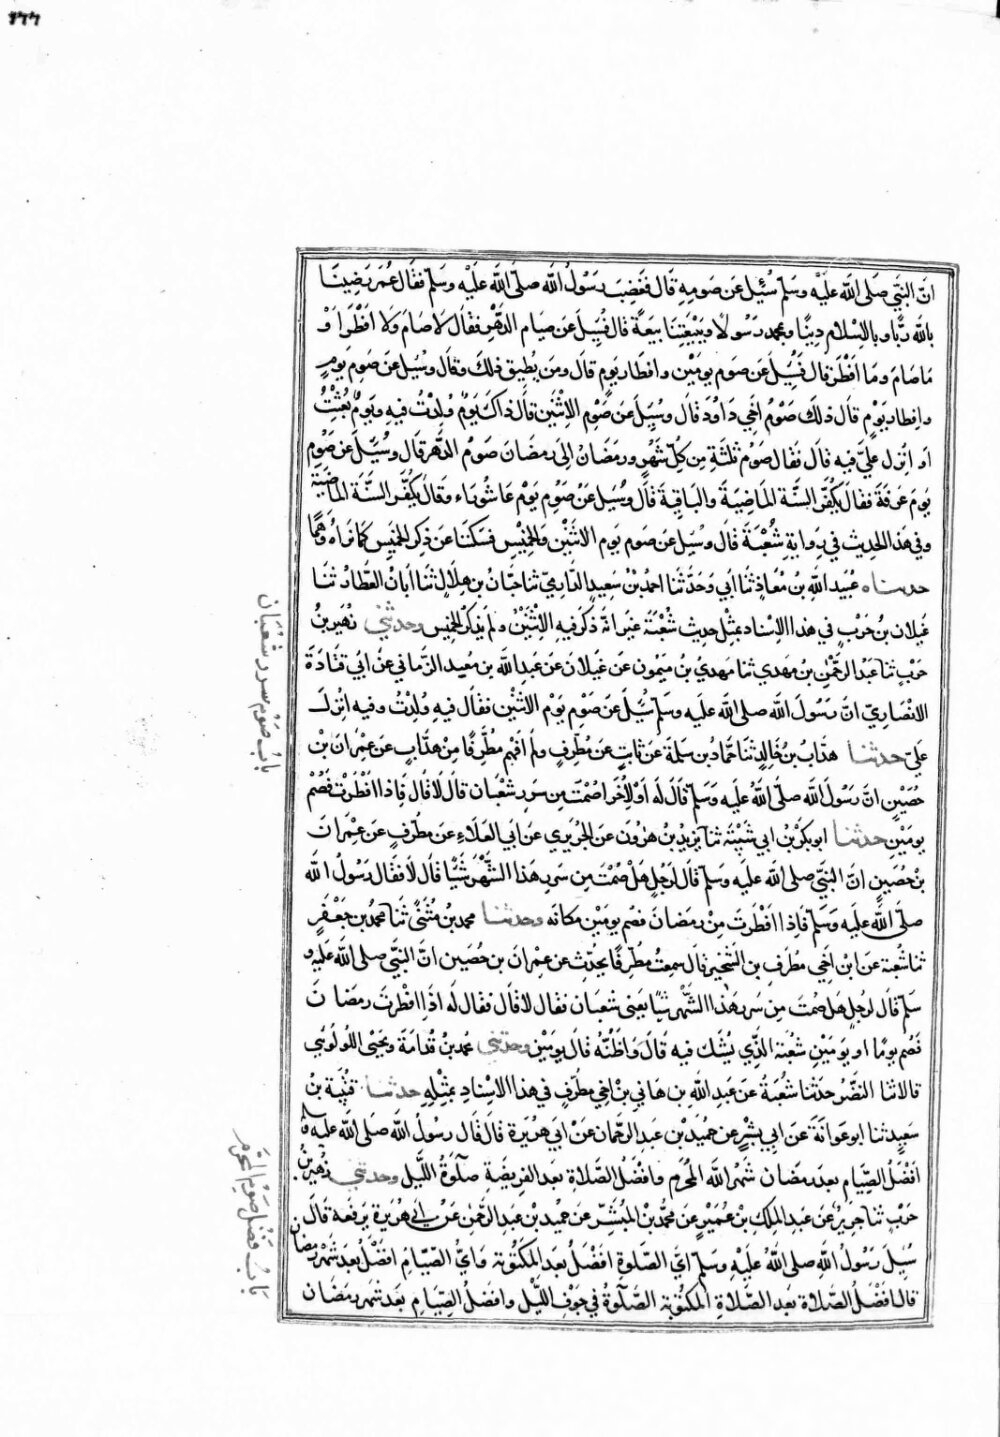 ٢٢٢
انّ النبّي صلى الله عليه وسلم سُئِل عن صومه قال فغضب رسول الله صلى الله عليه وسلم فقال عمر رضينا
بالله ربّا وبالاسلام دينًا وبمحمد رسولا وببيعتنا بيعة قال فسُيل عن صيام الدهر فقال لا صام ولا افطر او
ما صام وما افطر قال فسُيل عن صوم يومين وافطار يوم قال ومن يُطيق ذلك وقال وسُيل عن صوم يوم
وافطار يوم قال ذلك صوم اخي داود قال وسُيل عن صوم الاثنين قال ذاك يوم ولدت فيه ويوم بُعِثتُ
او انزل عليّ فيه قال فقال صوم ثلثة من كلّ شهر ورمضان الى رمضان صوم الدهر قال وسُيل عن صوم
يوم عرفة فقال يكفّر السنّة الماضية والباقية قال وسُيل عن صوم يوم عاشوراء وقال يكفّر السنّة الماضية
وفي هذا الحديث في رواية شعبة قال وسُيل عن صوم يوم الاثنين والخميس فسكتنا عن ذكر الخميس كما نراه وهمًا
حدثناه عبيد الله بن معاذ ثنا ابي وحدثنا احمد بن سعيد الدارميّ ثنا حبّان بن هلال ثنا أبان العطّار ثنا
غيلان بن حرب في هذا الاسناد بمثل حديث شعبة غير انه ذكر فيه الاثنين ولم يذكر الخميس وحدثني زهير بن
حرب ثنا عبد الرحمن بن مهدي ثنا مهدي بن ميمون عن غيلان عن عبد الله بن معبد الزماني عن ابي قتادة
الانصاريّ انّ رسول الله صلى الله عليه وسلم سُيل عن صوم يوم الاثنين فقال فيه ولدت وفيه انزل
عليّ حدثنا هدّاب بن خالد ثنا حمّاد بن سلمة عن ثابت عن مطرف ولم افهم مطرفًا من هدّاب عن عمران بن
حصين انّ رسول الله صلى الله عليه وسلم قال له او لآخر اصمت من سرر شعبان قال لا قال فاذا افطرت فصم
يومين حدثنا ابو بكر بن ابي شيبة ثنا يزيد بن هرون عن الجريري عن ابي العلاء عن مطرف عن عمران
بن حصين انّ النبّي صلى الله عليه وسلم قال لرجل هل صُمتَ من سرر هذا الشهر شيًا قال لا فقال رسول الله
صلّى الله عليه وسلم فاذا افطرت من رمضان فصم يومين مكانه وحدثنا محمد بن مثنّى ثنا محمد بن جعفر
ثنا شعبة عن ابن اخي مطرف بن الشخير قال سمعت مطرفًا يحدّث عن عمران بن حصين انّ النبّي صلى الله عليه و
سلم قال لرجل هل صمت من سرر هذا الشهر شيًا يعني شعبان فقال لا قال فقال له اذا افطرت رمضان
فصم يوما او يومين شعبة الذي يشك فيه قال واظنّه قال يومين وحدثني محمد بن قدامة ويحيى اللولوي
قالا انا النضر حدثنا شعبة عن عبد الله بن هاني بن اخي مطرف في هذا الاسناد بمثله حدثنا قتيبة بن
سعيد ثنا ابو عوانة عن ابي بشر عن حميد بن عبد الرحمان عن ابي هريرة قال قال رسول الله صلى الله عليه وسلم
افضل الصيام بعد رمضان شهر الله المحرم وافضل الصّلاة بعد الفريضة صلوة الليل وحدثني زهير بن
حرب ثنا جرير عن عبد الملك بن عمير عن محمد بن المنتشر عن حميد بن عبد الرحمن عن ابي هريرة يرفعه قال
سُيل رسول الله صلى الله عليه وسلم ايّ الصلوة افضل بعد المكتوبة وايّ الصّيام افضل بعد شهر رمضان
قال افضل الصّلاة بعد الصّلاة المكتوبة الصّلوة في جوف الليل وافضل الصّيام بعد شهر رمضان
باب صوم سرر شعبان
باب فضل صوم المحرّم